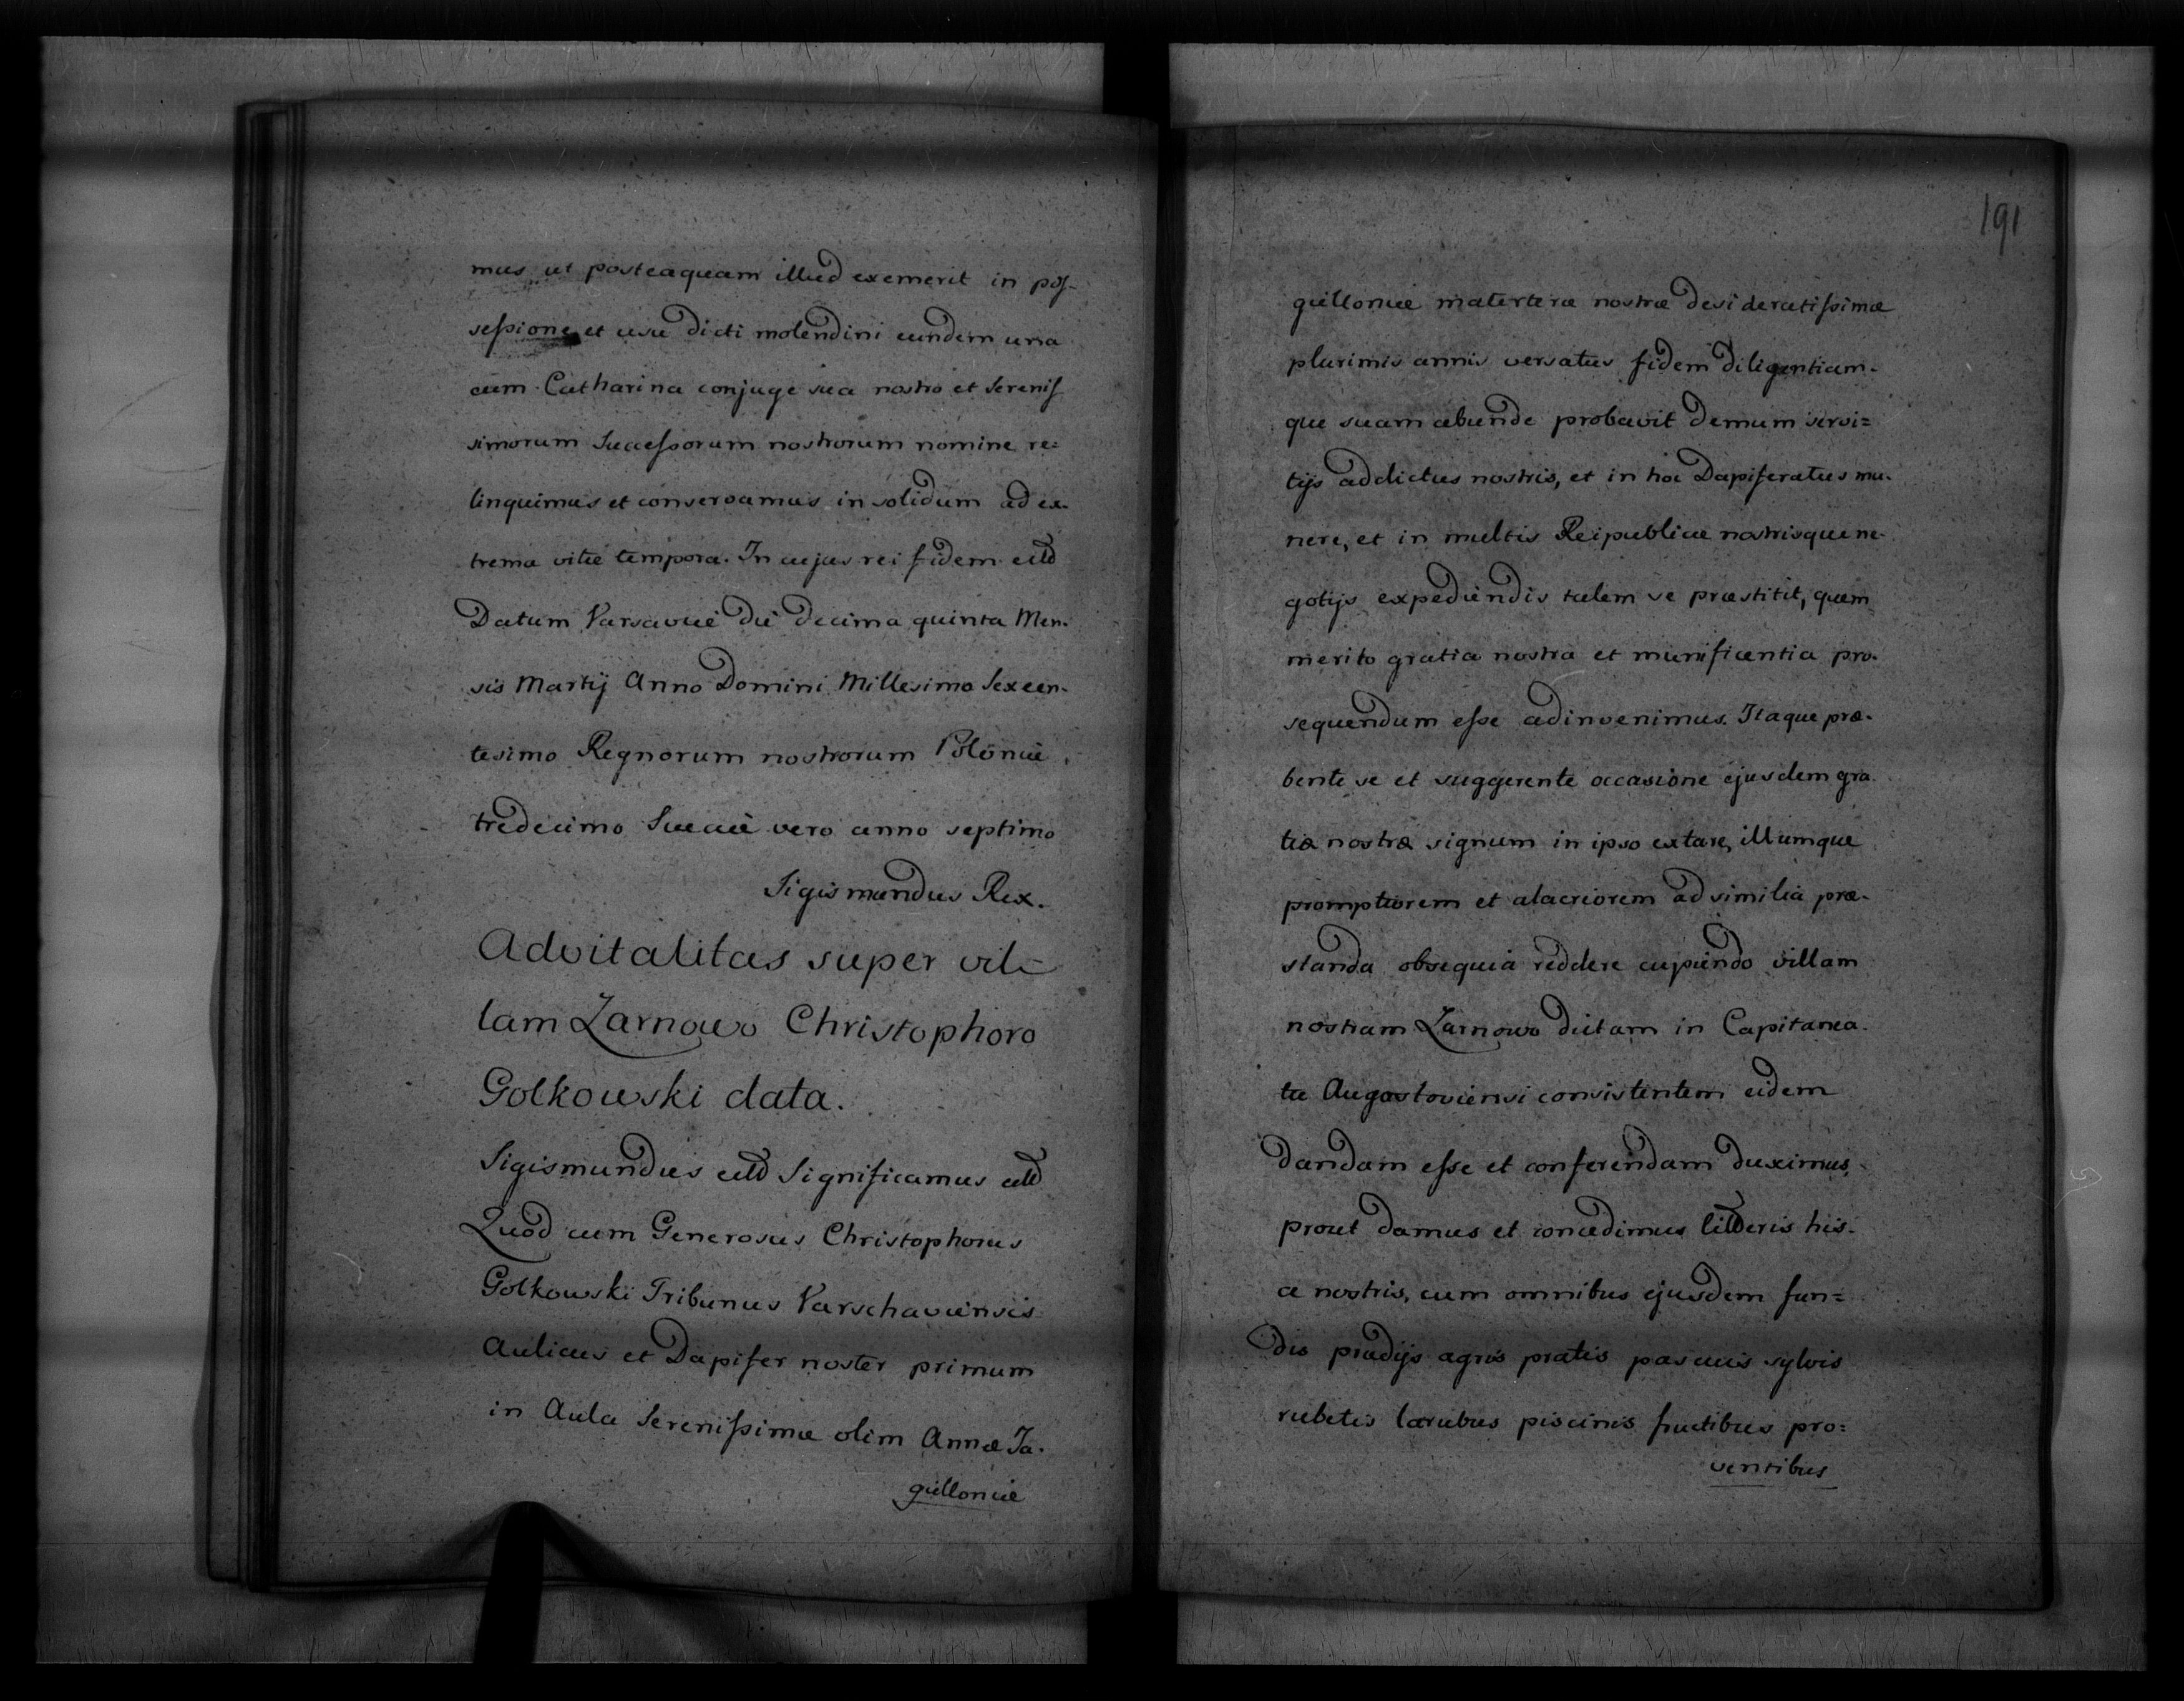 mus ut posteaquam illud exemerit in pos-
sessione et usu dicti molendini eundem una
cum Catharina conjuge sua nostro et Serenis
simorum Successorum nostrorum nomine re=
linquimus et conservamus in solidum ad ex-
trema vitæ tempora. In cujus rei fidem etc
Datum Varsaviæ die decima quinta Men-
sis Martij Anno Domini Millesimo Sexcen-
tesimo Regnorum nostrorum Poloniæ
tredecimo Sueciæ vero anno septimo
Sigismundus Rex.
Advitalitas super vil-
lam Zarnowo Christophoro
Golkowski data.
Sigismundus etc Significamus etc
Quod cum Generosus Christophorus
Golkowski Tribunus Varschaviensis
Aulicus et Dapifer noster primum
in Aula Serenissimæ olim Annæ Ja-
gielloniæ
191
gielloniæ materteræ nostræ desideratissimæ
plurimis annis versatus fidem diligentiam-
que suam abunde probavit demum servi=
tijs addictus nostris, et in hoc Dapiferatus mu-
nere, et in multis Reipublicæ nostrisque ne-
gotijs expediendis talem se præstitit, quem
merito gratia nostra et munificentia pro-
sequendum esse adinvenimus. Itaque præ-
bente se et suggerente occasione ejusdem gra-
tiæ nostræ signum in ipso extare, illumque
promptiorem et alacriorem ad similia præ-
standa obsequia reddere cupiendo villam
nostram Zarnowo dictam in Capitanea-
tu Augustoviensi consistentem eidem
dandam esse et conferendam duximus,
prout damus et concedimus litteris his-
ce nostris, cum omnibus ejusdem fun=
dis prædijs agris pratis pascuis sylvis
rubetis lacubus piscinis fructibus pro=
ventibus